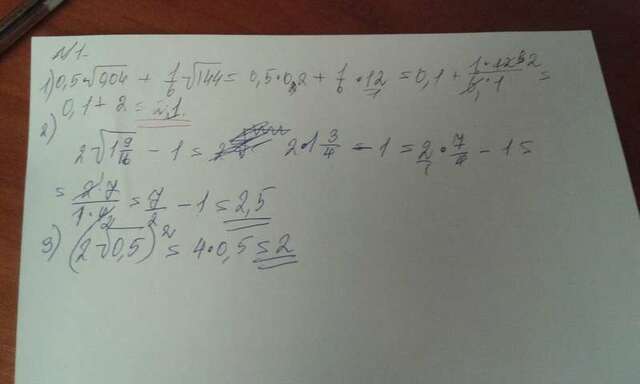 №1.
1) 0,5·√904 + 1/6 √144 = 0,5·0,2 + 1/6 · 12/1 = 0,1 + 1·12 2/6·1 =
0,1 + 2 = 2,1.
2)
2√1 9/16 − 1 = 2·1 3/4 − 1 = 2/1 · 7/4 − 1 =
= 2·7/1·4 2 = 7/2 − 1 = 2,5
3) (2√0,5)² = 4·0,5 = 2